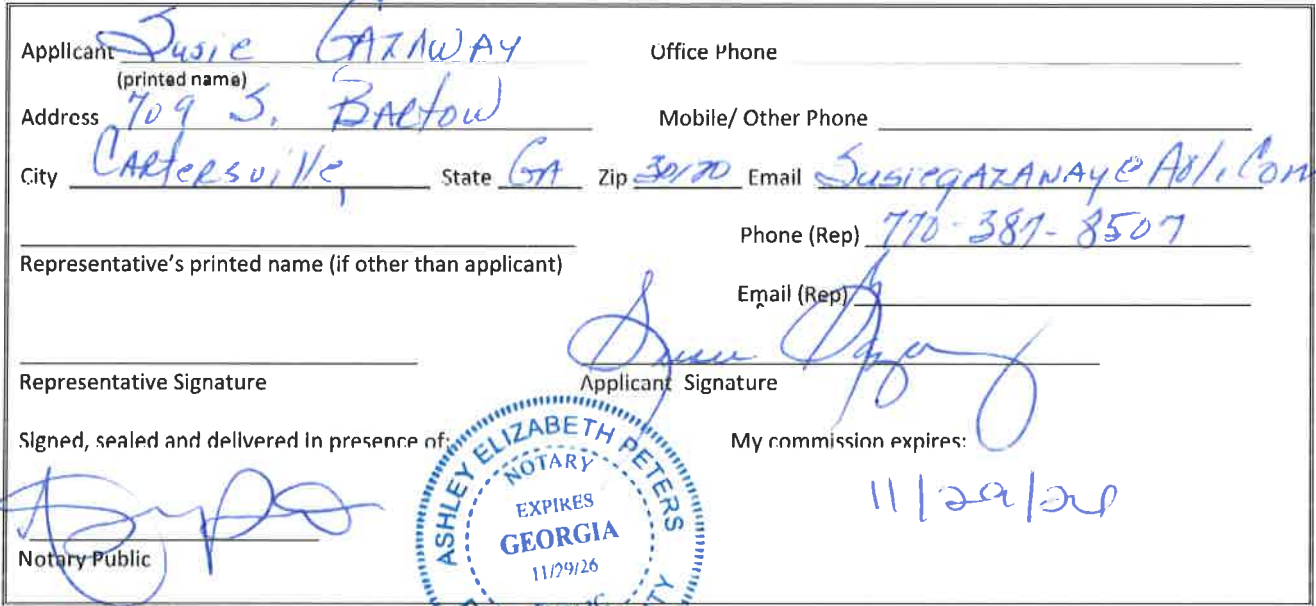 Applicant Susie GAZAWAY Office Phone
(printed name)
Address 709 S. BARtOW Mobile/ Other Phone
City CARteRsville, State GA Zip 30120 Email SusiegAZAWAY@AOl.Com
Phone (Rep) 770-387-8507
Representative's printed name (if other than applicant)
Email (Rep)
Representative Signature Applicant Signature
Signed, sealed and delivered in presence of: My commission expires:
ASHLEY ELIZABETH PETERS
NOTARY
EXPIRES
GEORGIA
11/29/26
11/29/26
Notary Public